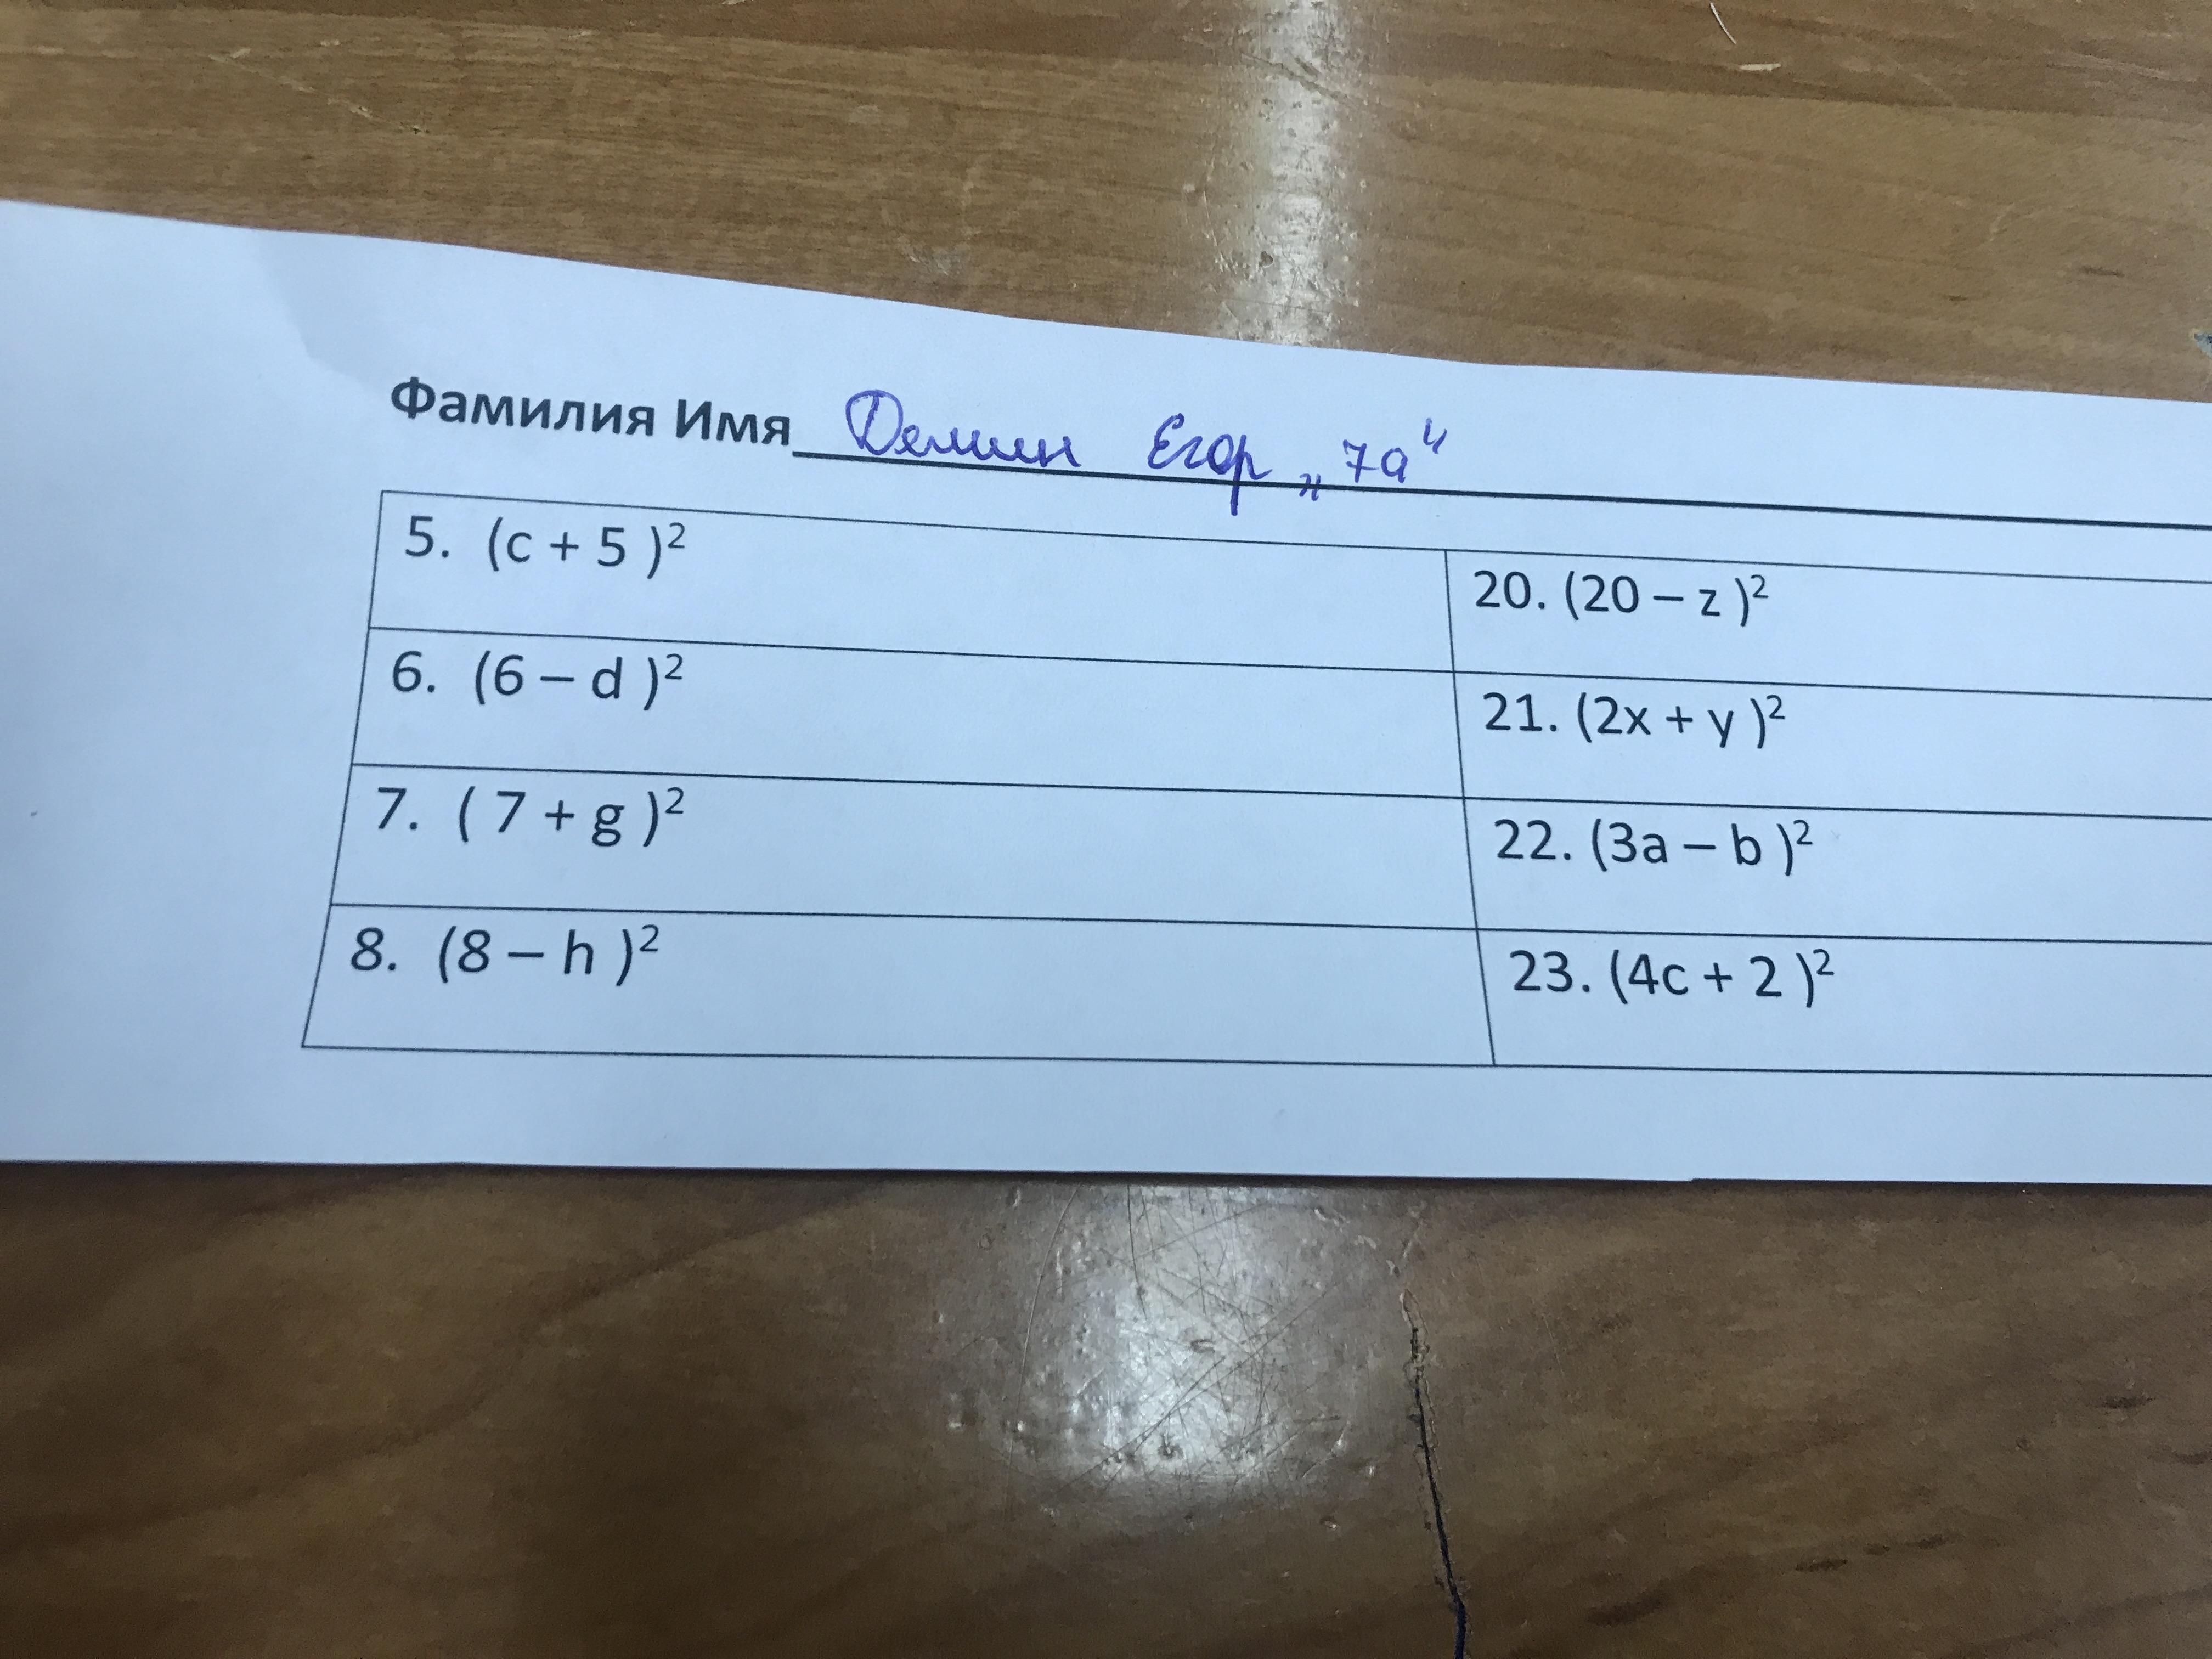 Фамилия Имя Демин Егор „7а“
5. (c + 5 )²
20. (20 – z )²
6. (6 – d )²
21. (2x + y )²
7. ( 7 + g )²
22. (3a – b )²
8. (8 – h )²
23. (4c + 2 )²